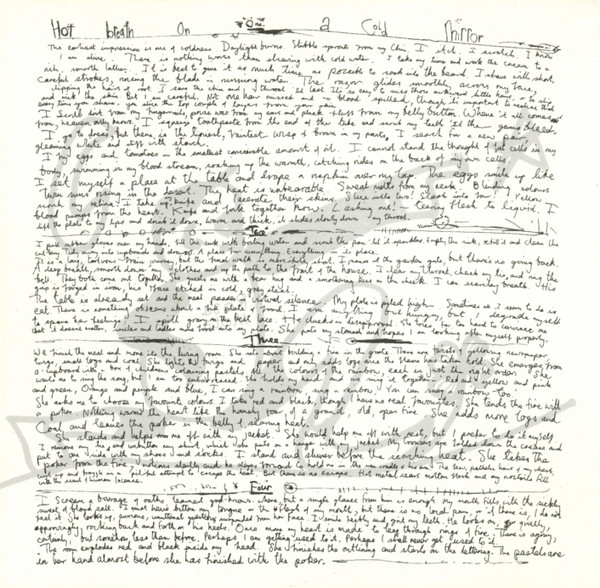 Hot breath on a cold mirror
One
The earliest impression is one of coldness. Daylight burns. Stubble sprouts from my chin. I itch. I scratch. I know
I am alive. There is nothing worse than shaving with cold water. I take my time and work the cream to a
rich, smooth lather. It is best to give it as much time as possible to soak into the beard. I shave with short,
careful strokes, rinsing the blade in running water. The razor glides smoothly across my face,
clipping the hairs at root. I save the chin and throat 'til last. It is easy to miss those awkward little hairs
and nick the skin. But I am careful. Not one hair missed and no blood spilled, though it's important to realise that
every time you shave you slice the top couple of layers from your skin.
I scrub dirt from my fingernails, prise wax from my ears and pluck fluff from my belly button. Where it all comes
from, heaven only knows. I squeeze toothpaste from the end of the tube and scrub my teeth 'til the gums bleed,
gleaming white and stiff with starch. I search for a new pair
I fry eggs and tomatoes in the smallest conceivable amount of oil. I cannot stand the thought of fat cells in my
body, swimming in my blood stream, soaking up the warmth, catching rides on the back of my own cells.
I set myself a place at the table and drape a napkin over my lap. The eggs smile up like
twin suns rising in the desert. The heat is unbearable. Sweat melts from my neck. Blinding colours
scorch my retina. I take up knife and lacerate their skins. Slice into two. Yellow
blood pumps from the heart. Knife and fork together now. Lashing out. Tearing flesh to liquid. I
lift the plate to my lips and drink it down, warm and thick, it slides slowly down my throat.
Two
I pull rubber gloves over my hands, fill the sink with boiling water and scrub the pan 'til it sparkles. Empty the sink, refill it and clean the
cutlery. Tidy away into cupboards and drawers. A place for everything. Everything in its place.
It's a long, tortuous train journey but the final walk is mercifully short. I pause at the garden gate, but there's no going back.
A deep breath, smooth down my clothes and up the path to the front of the house. I clear my throat, check my tie, and ring the
bell. They both come out together. She greets me with a bear hug and a smothering kiss on the cheek. I can scarcely breath. His
grip is forged in iron, his face etched in cold, grey steel.
The table is already set and the meal passes in virtual silence. My plate is piled high. Sometimes all I seem to do is
eat. There is something obscene about a full plate of food. I am anything but hungry, but I degrade myself
to spare her feelings. I spill gravy on the best lace. He clucks in disapproval. She tries, ever so hard to convince me
that it doesn't matter, smiles and ladles more food onto my plate. She pats my stomach and hopes I am looking after myself properly.
Three
We finish the meal and move to the living room. She sets about building a fire in the grate. There are sheets of yellowing newspaper,
twigs, small logs and coal. She lights the fringes of the paper and only adds logs once the flames have taken hold. She emerges from
a cupboard with a box of children's colouring pastels. All the colours of the rainbow, each in just the right order. She
wants me to sing the song, but I am too embarrassed. She holds my hand and we sing it together. Red and yellow and pink
and green, Orange and purple and blue, I can sing a rainbow, sing a rainbow, You can sing a rainbow too.
She asks me to choose my favourite colours. I take red and black, though I have no real favourites. She tends the fire with
a poker. Nothing warms the heart like the homely roar of a grand, old, open fire. She adds more logs and
coal and leaves the poker in the belly of searing heat.
She stands and helps me off with my jacket. She would help me off with the rest, but I prefer to do it myself.
I remove my tie and unbutton my shirt, which I also put on a hanger with my jacket. My trousers are folded down the creases and
put to one side with my shoes and socks. I stand and shiver before the searing heat. She takes the
poker from the fire
into the scent of human incense.
Four
I scream a barrage of oaths learned god-knows-where, but a single glance from him is enough. My mouth fills with the sickly
sweet of blood cells. I have bitten my tongue in the flesh of my mouth, but there is no local pain, or if there is, I do not
feel it. She looks up, smiling, unbridled satisfaction from her face. I smile back, and grit my teeth. He looks on, giving
approvingly, rocking back and forth on his heels. Once more my heart is made to leap through rings of fire. There is agony,
certainly, but somehow less than before. Perhaps I am getting used to it. Perhaps I shall never get used to it.
The room explodes red and black inside my head. She finishes the outlining and starts on the lettering. The pastels are
in her hand almost before she has finished with the poker.